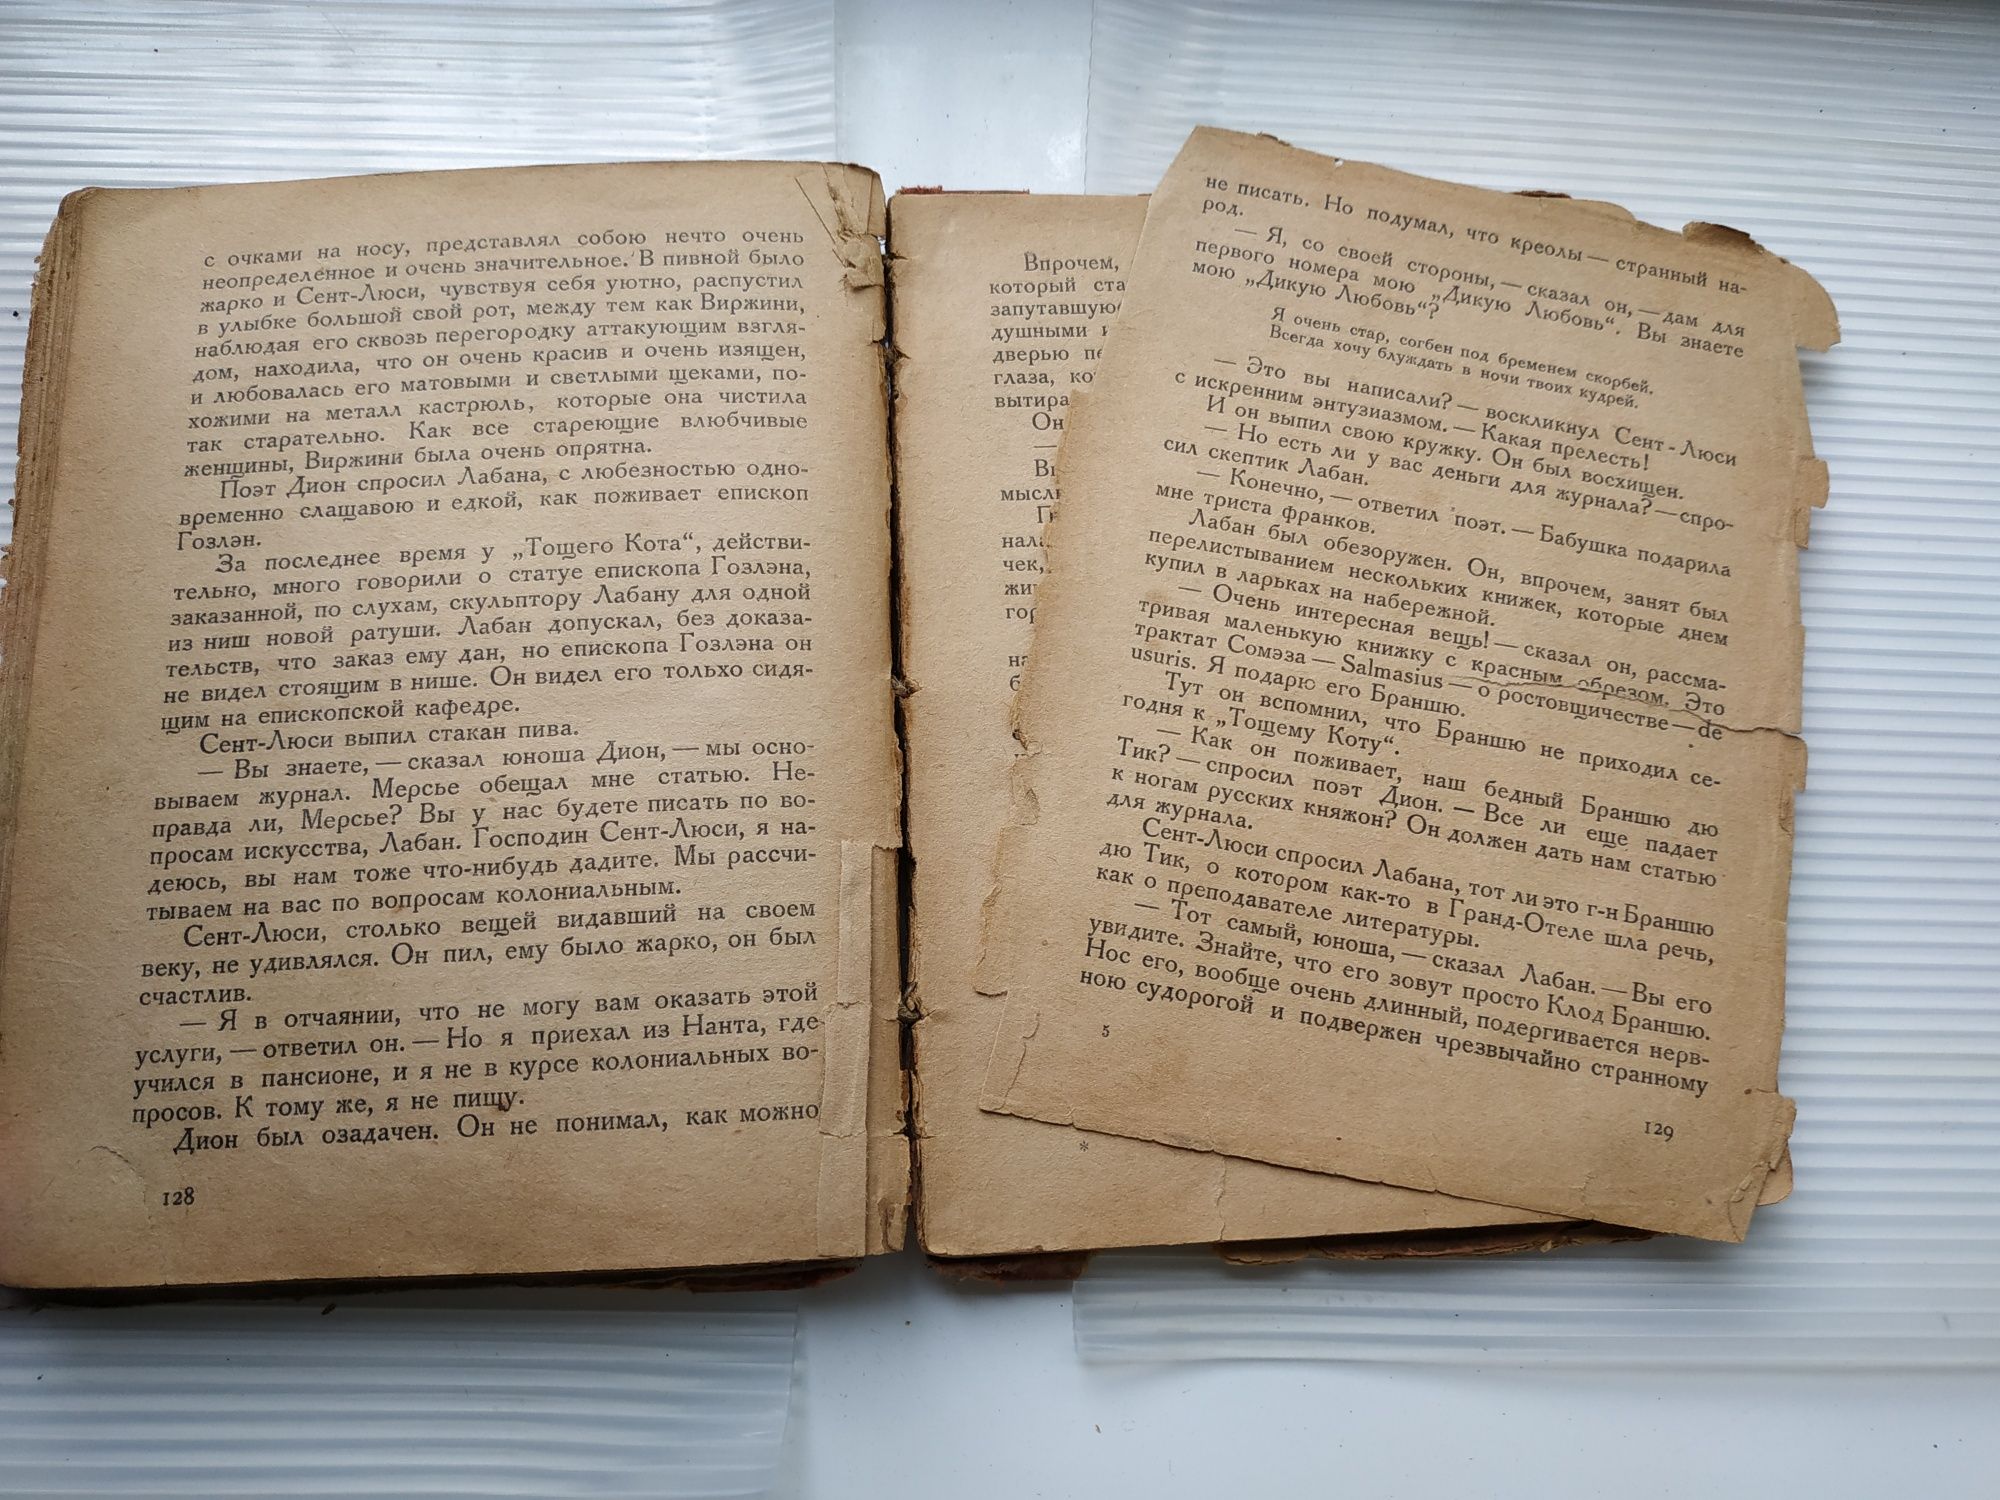 с очками на носу, представлял собою нечто очень
неопределенное и очень значительное. В пивной было
жарко и Сент-Люси, чувствуя себя уютно, распустил
в улыбке большой свой рот, между тем как Виржини,
наблюдая его сквозь перегородку аттакующим взгля-
дом, находила, что он очень красив и очень изящен,
и любовалась его матовыми и светлыми щеками, по-
хожими на металл кастрюль, которые она чистила
так старательно. Как все стареющие влюбчивые
женщины, Виржини была очень опрятна.
Поэт Дион спросил Лабана, с любезностью одно-
временно слащавою и едкой, как поживает епископ
Гозлэн.
За последнее время у „Тощего Кота“, действи-
тельно, много говорили о статуе епископа Гозлэна,
заказанной, по слухам, скульптору Лабану для одной
из ниш новой ратуши. Лабан допускал, без доказа-
тельств, что заказ ему дан, но епископа Гозлэна он
не видел стоящим в нише. Он видел его тольхо сидя-
щим на епископской кафедре.
Сент-Люси выпил стакан пива.
— Вы знаете, — сказал юноша Дион, — мы осно-
вываем журнал. Мерсье обещал мне статью. Не-
правда ли, Мерсье? Вы у нас будете писать по во-
просам искусства, Лабан. Господин Сент-Люси, я на-
деюсь, вы нам тоже что-нибудь дадите. Мы рассчи-
тываем на вас по вопросам колониальным.
Сент-Люси, столько вещей видавший на своем
веку, не удивлялся. Он пил, ему было жарко, он был
счастлив.
— Я в отчаянии, что не могу вам оказать этой
услуги, — ответил он. — Но я приехал из Нанта, где
учился в пансионе, и я не в курсе колониальных во-
просов. К тому же, я не пишу.
Дион был озадачен. Он не понимал, как можно
128
Впрочем,
который ста
запутавшую
душными и
дверью пе
глаза, ко
вытира
Он
—
мысл
нал
чек,
жи
гор
на
б
*
не писать. Но подумал, что креолы — странный на-
род.
— Я, со своей стороны, — сказал он, — дам для
первого номера мою „Дикую Любовь“. Вы знаете
мою „Дикую Любовь“?
Я очень стар, согбен под бременем скорбей.
Всегда хочу блуждать в ночи твоих кудрей.
— Это вы написали? — воскликнул Сент-Люси
с искренним энтузиазмом. — Какая прелесть!
И он выпил свою кружку. Он был восхищен.
— Но есть ли у вас деньги для журнала? — спро-
сил скептик Лабан.
— Конечно, — ответил поэт. — Бабушка подарила
мне триста франков.
Лабан был обезоружен. Он, впрочем, занят был
перелистыванием нескольких книжек, которые днем
купил в ларьках на набережной.
— Очень интересная вещь! — сказал он, рассма-
тривая маленькую книжку с красным обрезом. Это
трактат Сомэза — Salmasius — о ростовщичестве — de
usuris. Я подарю его Браншю.
Тут он вспомнил, что Браншю не приходил се-
годня к „Тощему Коту“.
— Как он поживает, наш бедный Браншю дю
Тик? — спросил поэт Дион. — Все ли еще падает
к ногам русских княжон? Он должен дать нам статью
для журнала.
Сент-Люси спросил Лабана, тот ли это г-н Браншю
дю Тик, о котором как-то в Гранд-Отеле шла речь,
как о преподавателе литературы.
— Тот самый, юноша, — сказал Лабан. — Вы его
увидите. Знайте, что его зовут просто Клод Браншю.
Нос его, вообще очень длинный, подергивается нерв-
ною судорогой и подвержен чрезвычайно странному
5
129